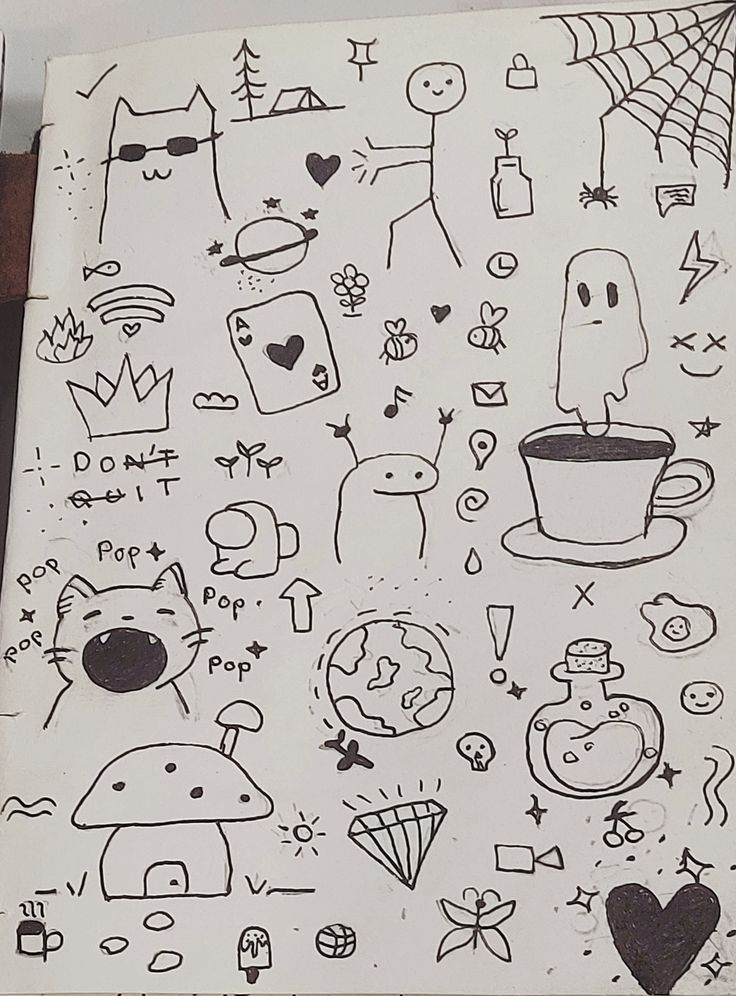 A
A
DON'T
QUIT
Pop
POP
POP
POP.
POP